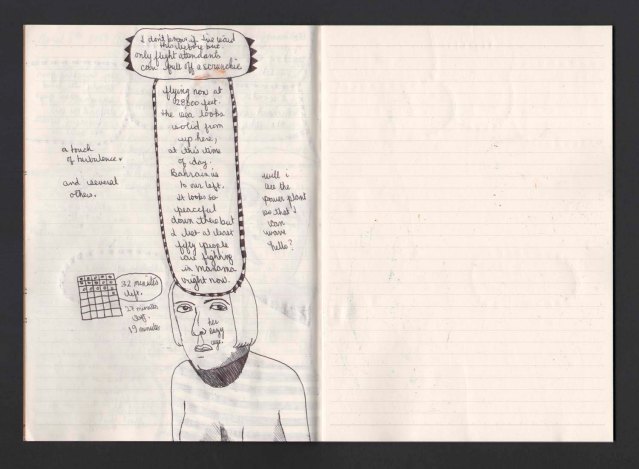 I don't know if I've said
this before but
only flight attendants
can pull off a scrunchie
flying now at
28,000 feet.
the sea looks
solid from
up here,
at this time
of day.
Bahrain is
to our left.
it looks so
peaceful
down there but
I bet at least
fifty people
are fighting
in Manama
right now.
a touch
of turbulence.
and several
others.
will i
see the
power plant
so that i
can
wave
hello?
32 minutes
left.
27 minutes
left.
19 minutes
her
lazy
eye.